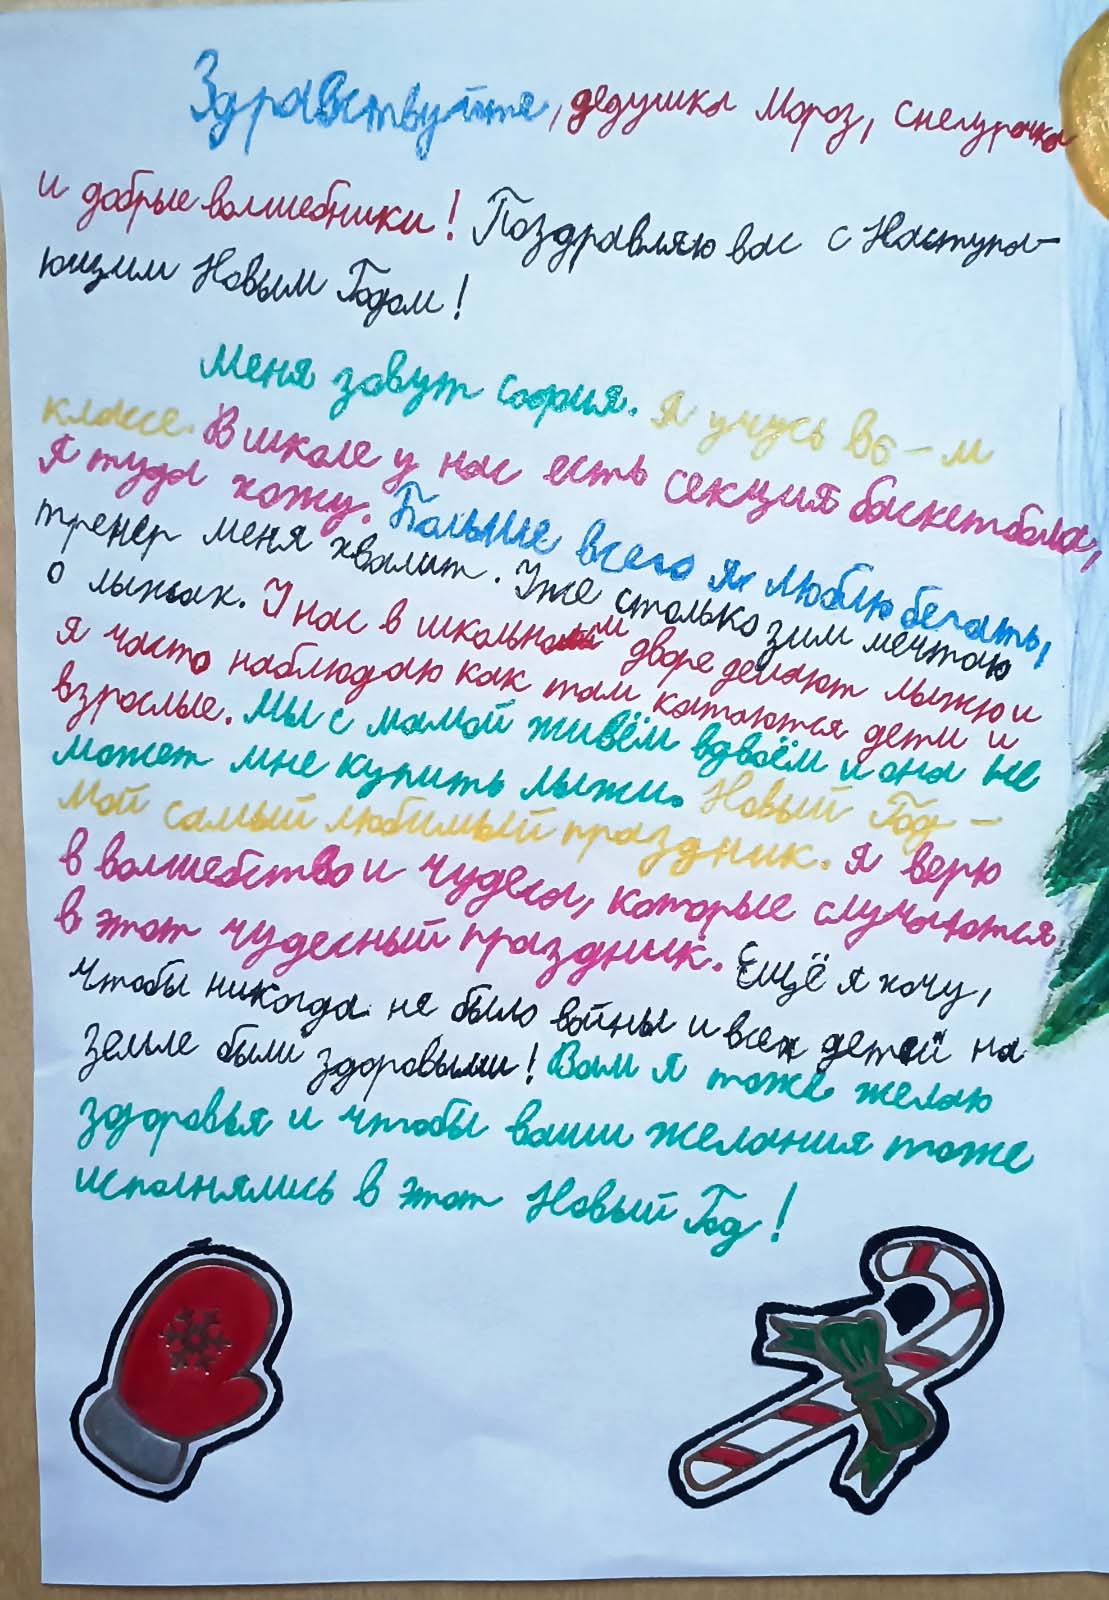 Здравствуйте, дедушка Мороз, Снегурочка
и добрые волшебники! Поздравляю вас с Наступа-
ющим Новым Годом!
Меня зовут София. Я учусь в 6-м
классе. В школе у нас есть секция баскетбола,
я туда хожу. Больше всего я люблю бегать,
тренер меня хвалит. Уже столько зим мечтаю
о лыжах. У нас в школьном дворе делают лыжню и
я часто наблюдаю как там катаются дети и
взрослые. Мы с мамой живём вдвоём и она не
может мне купить лыжи. Новый Год -
мой самый любимый праздник. Я верю
в волшебство и чудеса, которые случаются
в этот чудесный праздник. Ещё я хочу,
чтобы никогда не было войны и всех детей на
земле были здоровыми! Вам я тоже желаю
здоровья и чтобы ваши желания тоже
исполнялись в этот Новый Год!